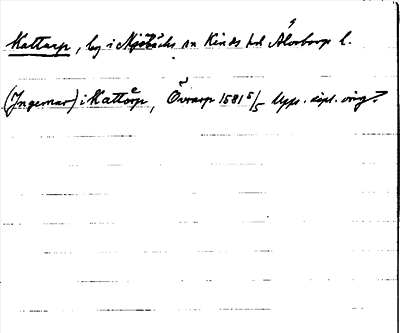 Mattarp, by i Mjöbäcks sn Kinds hd Älvsborgs l.
(Ingemar) i Mattorp, Övrarp 1581 5/5 Upps. dipl. orig.